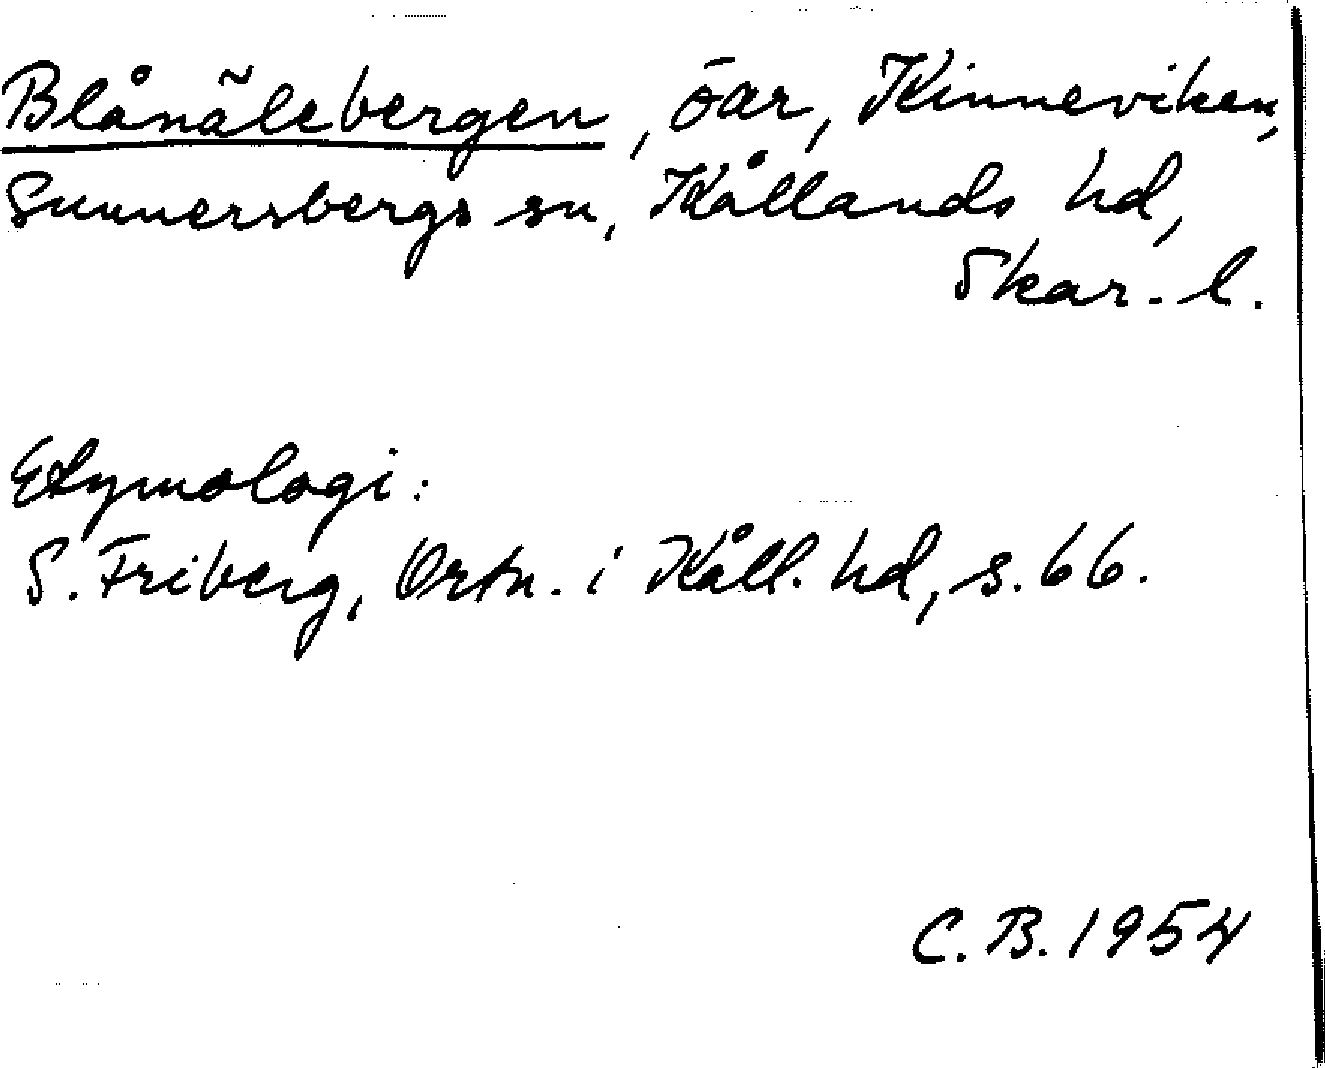 Blånälebergen, öar, Kinneviken,
Sunnersbergs sn, Kållands hd,
Skar. l.
Etymologi:
S. Friberg, Ortn. i Kåll. hd, s. 66.
C. B. 1954